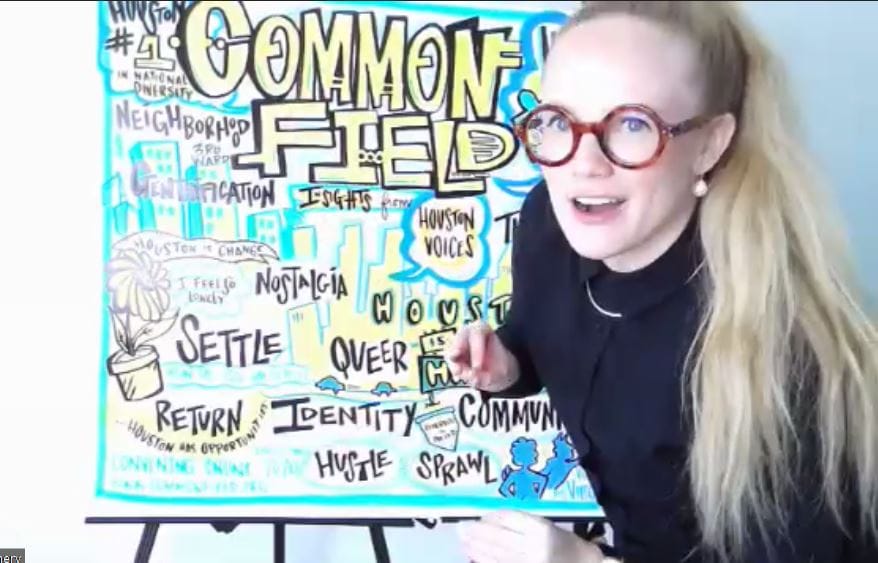 HOUSTON
#1
IN NATIONAL
DIVERSITY
COMMON
FIELD
NEIGHBORHOOD
3RD
WARD
GENTRIFICATION
INSIGHTS from
HOUSTON
VOICES
HOUSTON IS CHANGE
I FEEL SO
LONELY
NOSTALGIA
HOUST
IS
SETTLE
QUEER
RETURN
IDENTITY
COMMUN
HOUSTON HAS OPPORTUNITIES
HUSTLE
SPRAWL
CONVENING ONLINE
nery